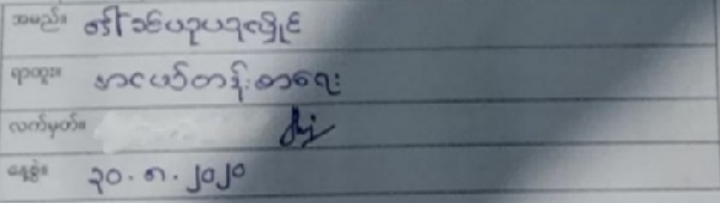 အမည်။ ဒေါ်ခင်ယုယုလှိုင်
ရာထူး။ အငယ်တန်းစာရေး
လက်မှတ်။
နေ့စွဲ။ ၃၀.၈.၂၀၂၀